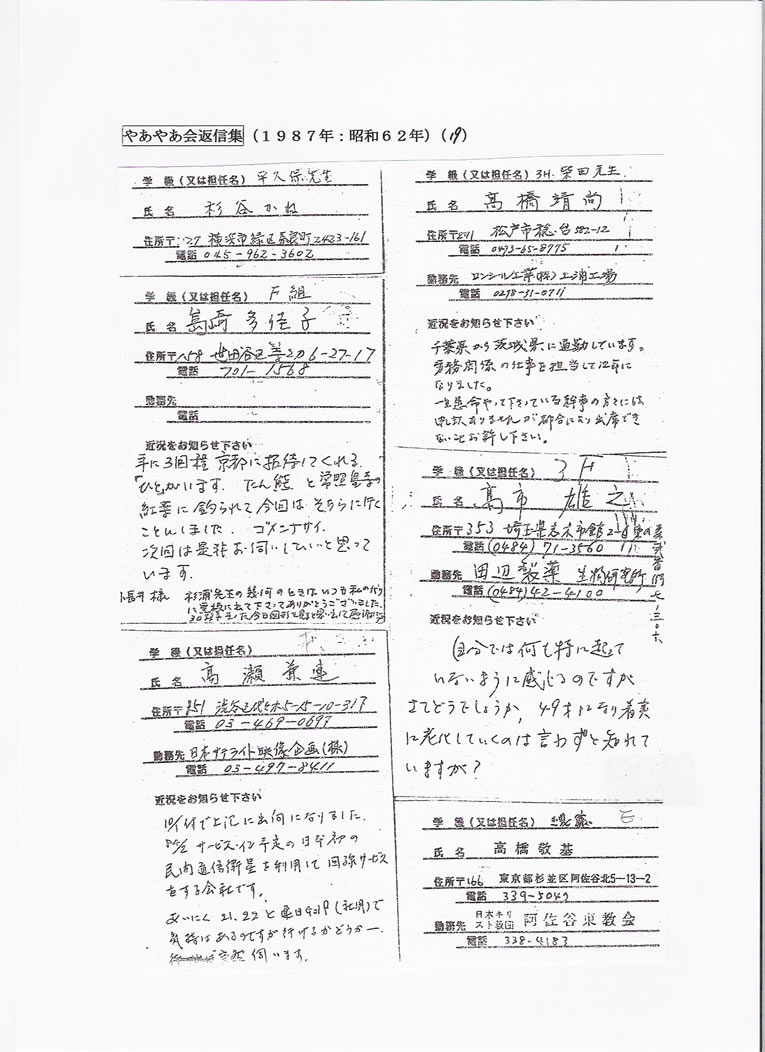 やあやあ会返信集（１９８７年：昭和６２年）（19）
学級（又は担任名）平久保先生
氏名 杉谷かね
住所〒227 横浜市緑区 町2423-161
電話 045-962-3602
学級（又は担任名）F組
氏名 島崎多佳子
住所〒158 世田谷区 6-27-17
電話 701-1568
勤務先
電話
近況をお知らせ下さい
年に3回程 京都に招待してくれる
ひとがいます。たん熊と常照皇寺の
紅葉に釣られて今回はそちらに行く
ことにしました。ゴメンナサイ。
次回は是非お伺いしたいと思って
います。
長井様 杉浦先生の幾何のときはいつも私の代り
に黒板に出て下さってありがとうございました。
学級（又は担任名）
氏名 高瀬兼連
住所〒151 渋谷区代々木5-15-10-317
電話 03-469-0697
勤務先 日本サテライト映像企画(株)
電話 03-497-8411
近況をお知らせ下さい
10/1付で上記に出向になりました。
サービス・イン予定の日本初の
民間通信衛星を利用して回線サービス
をする会社です。
あいにく21、22と 日ゴルフ(社用)で
気持はあるのですが行けるかどうか―.
伺います。
学級（又は担任名）3H. 柴田先生
氏名 高橋靖尚
住所〒271 松戸市稔台582-12
電話 0473-65-8775
勤務先 ロンシール工業(株)土浦工場
電話 0298-31-0711
近況をお知らせ下さい
千葉県から茨城県に通勤しています。
労務関係の仕事を担当して12年に
なりました。
一生懸命やって下さっている幹事の方々には
申し訳ありませんが都合により出席でき
ないことお許し下さい。
学級（又は担任名）3F
氏名 高市雄之
住所〒353 埼玉県志木市館2-
電話 (0484) 71-3560
勤務先 田辺製薬 生物研究所
電話 (0484) 42-4100
近況をお知らせ下さい
自分では何も特に起って
いないように感じるのですが
さてどうでしょうか。49才になり着実
に老化していくのは言わずと知れて
いますが？
学級（又は担任名） E
氏名 高橋敬基
住所〒166 東京都杉並区阿佐谷北5－13－2
電話 339-5049
勤務先 日本キリスト教団 阿佐谷東教会
電話 338-4183